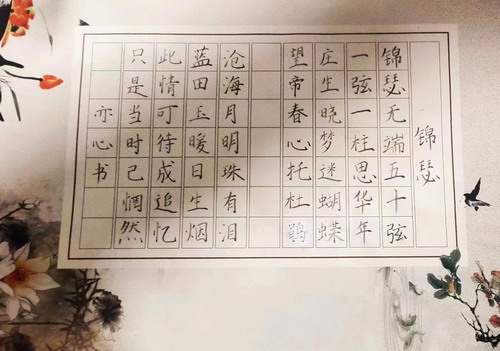 锦瑟
锦瑟无端五十弦
一弦一柱思华年
庄生晓梦迷蝴蝶
望帝春心托杜鹃
沧海月明珠有泪
蓝田玉暖日生烟
此情可待成追忆
只是当时已惘然
亦心书